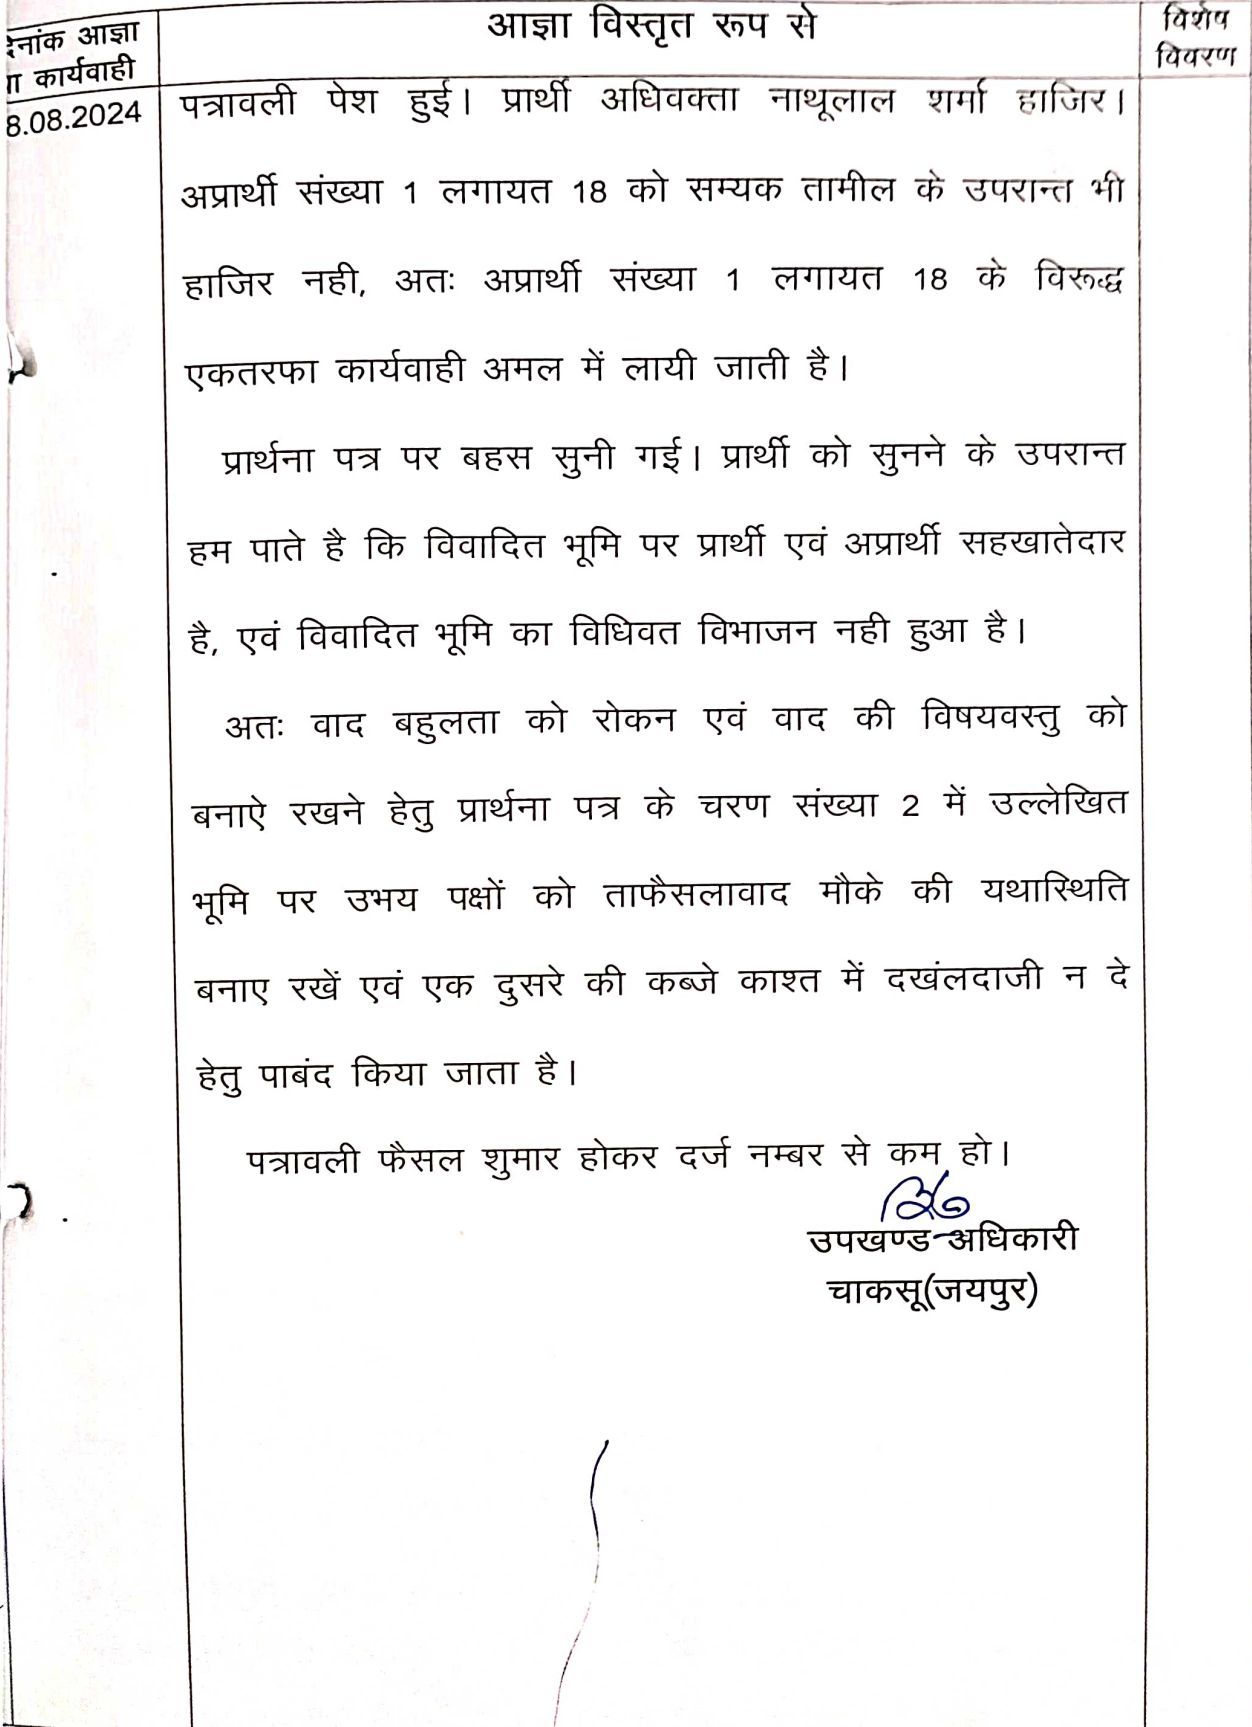 दिनांक आज्ञा
या कार्यवाही
आज्ञा विस्तृत रूप से
विशेष
विवरण
8.08.2024
पत्रावली पेश हुई। प्रार्थी अधिवक्ता नाथूलाल शर्मा हाजिर।
अप्रार्थी संख्या 1 लगायत 18 को सम्यक तामील के उपरान्त भी
हाजिर नही, अतः अप्रार्थी संख्या 1 लगायत 18 के विरूद्ध
एकतरफा कार्यवाही अमल में लायी जाती है।
प्रार्थना पत्र पर बहस सुनी गई। प्रार्थी को सुनने के उपरान्त
हम पाते है कि विवादित भूमि पर प्रार्थी एवं अप्रार्थी सहखातेदार
है, एवं विवादित भूमि का विधिवत विभाजन नही हुआ है।
अतः वाद बहुलता को रोकन एवं वाद की विषयवस्तु को
बनाऐ रखने हेतु प्रार्थना पत्र के चरण संख्या 2 में उल्लेखित
भूमि पर उभय पक्षों को ताफैसलावाद मौके की यथास्थिति
बनाए रखें एवं एक दुसरे की कब्जे काश्त में दखंलदाजी न दे
हेतु पाबंद किया जाता है।
पत्रावली फैसल शुमार होकर दर्ज नम्बर से कम हो।
उपखण्ड अधिकारी
चाकसू(जयपुर)